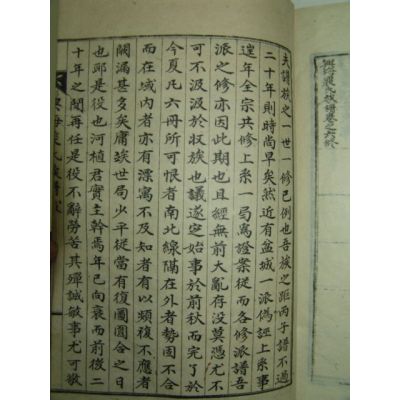 興海裵氏族譜卷之六終
夫譜族之一世一修已例也吾族之距丙子譜不過
二十年則時尚早矣然近有盆城一派僞誣上系事
年全宗共修上系一局寫證案從而各修派譜吾
派之修亦因此期也且經無前大亂存沒莫憑尤不
可不汲汲於收族也議遂定始事於前秋而完了於
今夏凡六冊所可恨者南北線隔在外者勢固不合
而在域內者亦有漂寓不及知者有以頻復不應者
闕漏甚多矣庸竢世局少平從當有復圖圓合之日
也耶是役也河植君實主幹焉年已向衰而前後二
十年之間再任是役不辭勞苦其殫誠敏事尤可欽